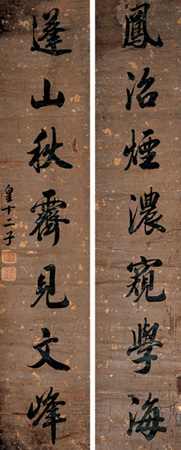 鳳沼煙濃窺學海
蓬山秋霽見文峰
皇十二子